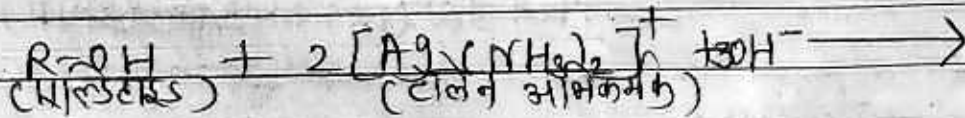 R-OH + 2 [Ag(NH₃)₂]⁺ + 3OH⁻ ⟶
(एल्डिहाइड) (टॉलेन अभिकर्मक)